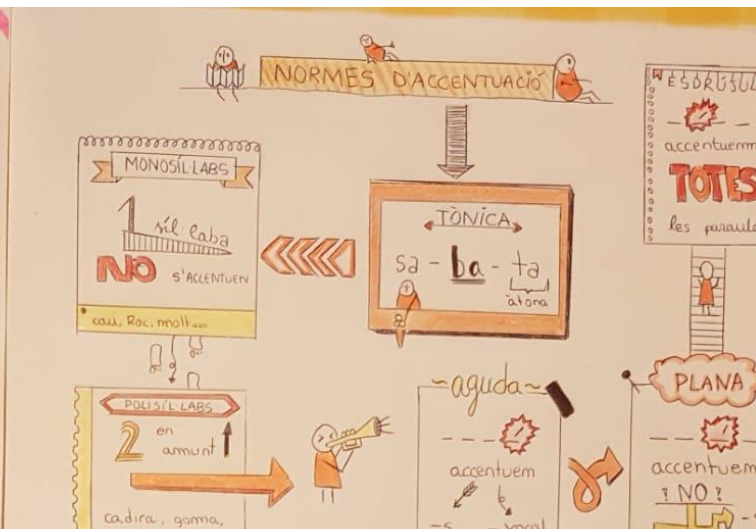 NORMES D'ACCENTUACIÓ
MONOSÍL·LABS
1 síl·laba
NO S'ACCENTUEN
TÒNICA
sa - ba - ta
àtona
accentuem
TOTES
les
POLISÍL·LABS
2 en
amunt
cadira, goma,
aguda
accentuem
-s vocal
PLANA
accentuem
? NO ?